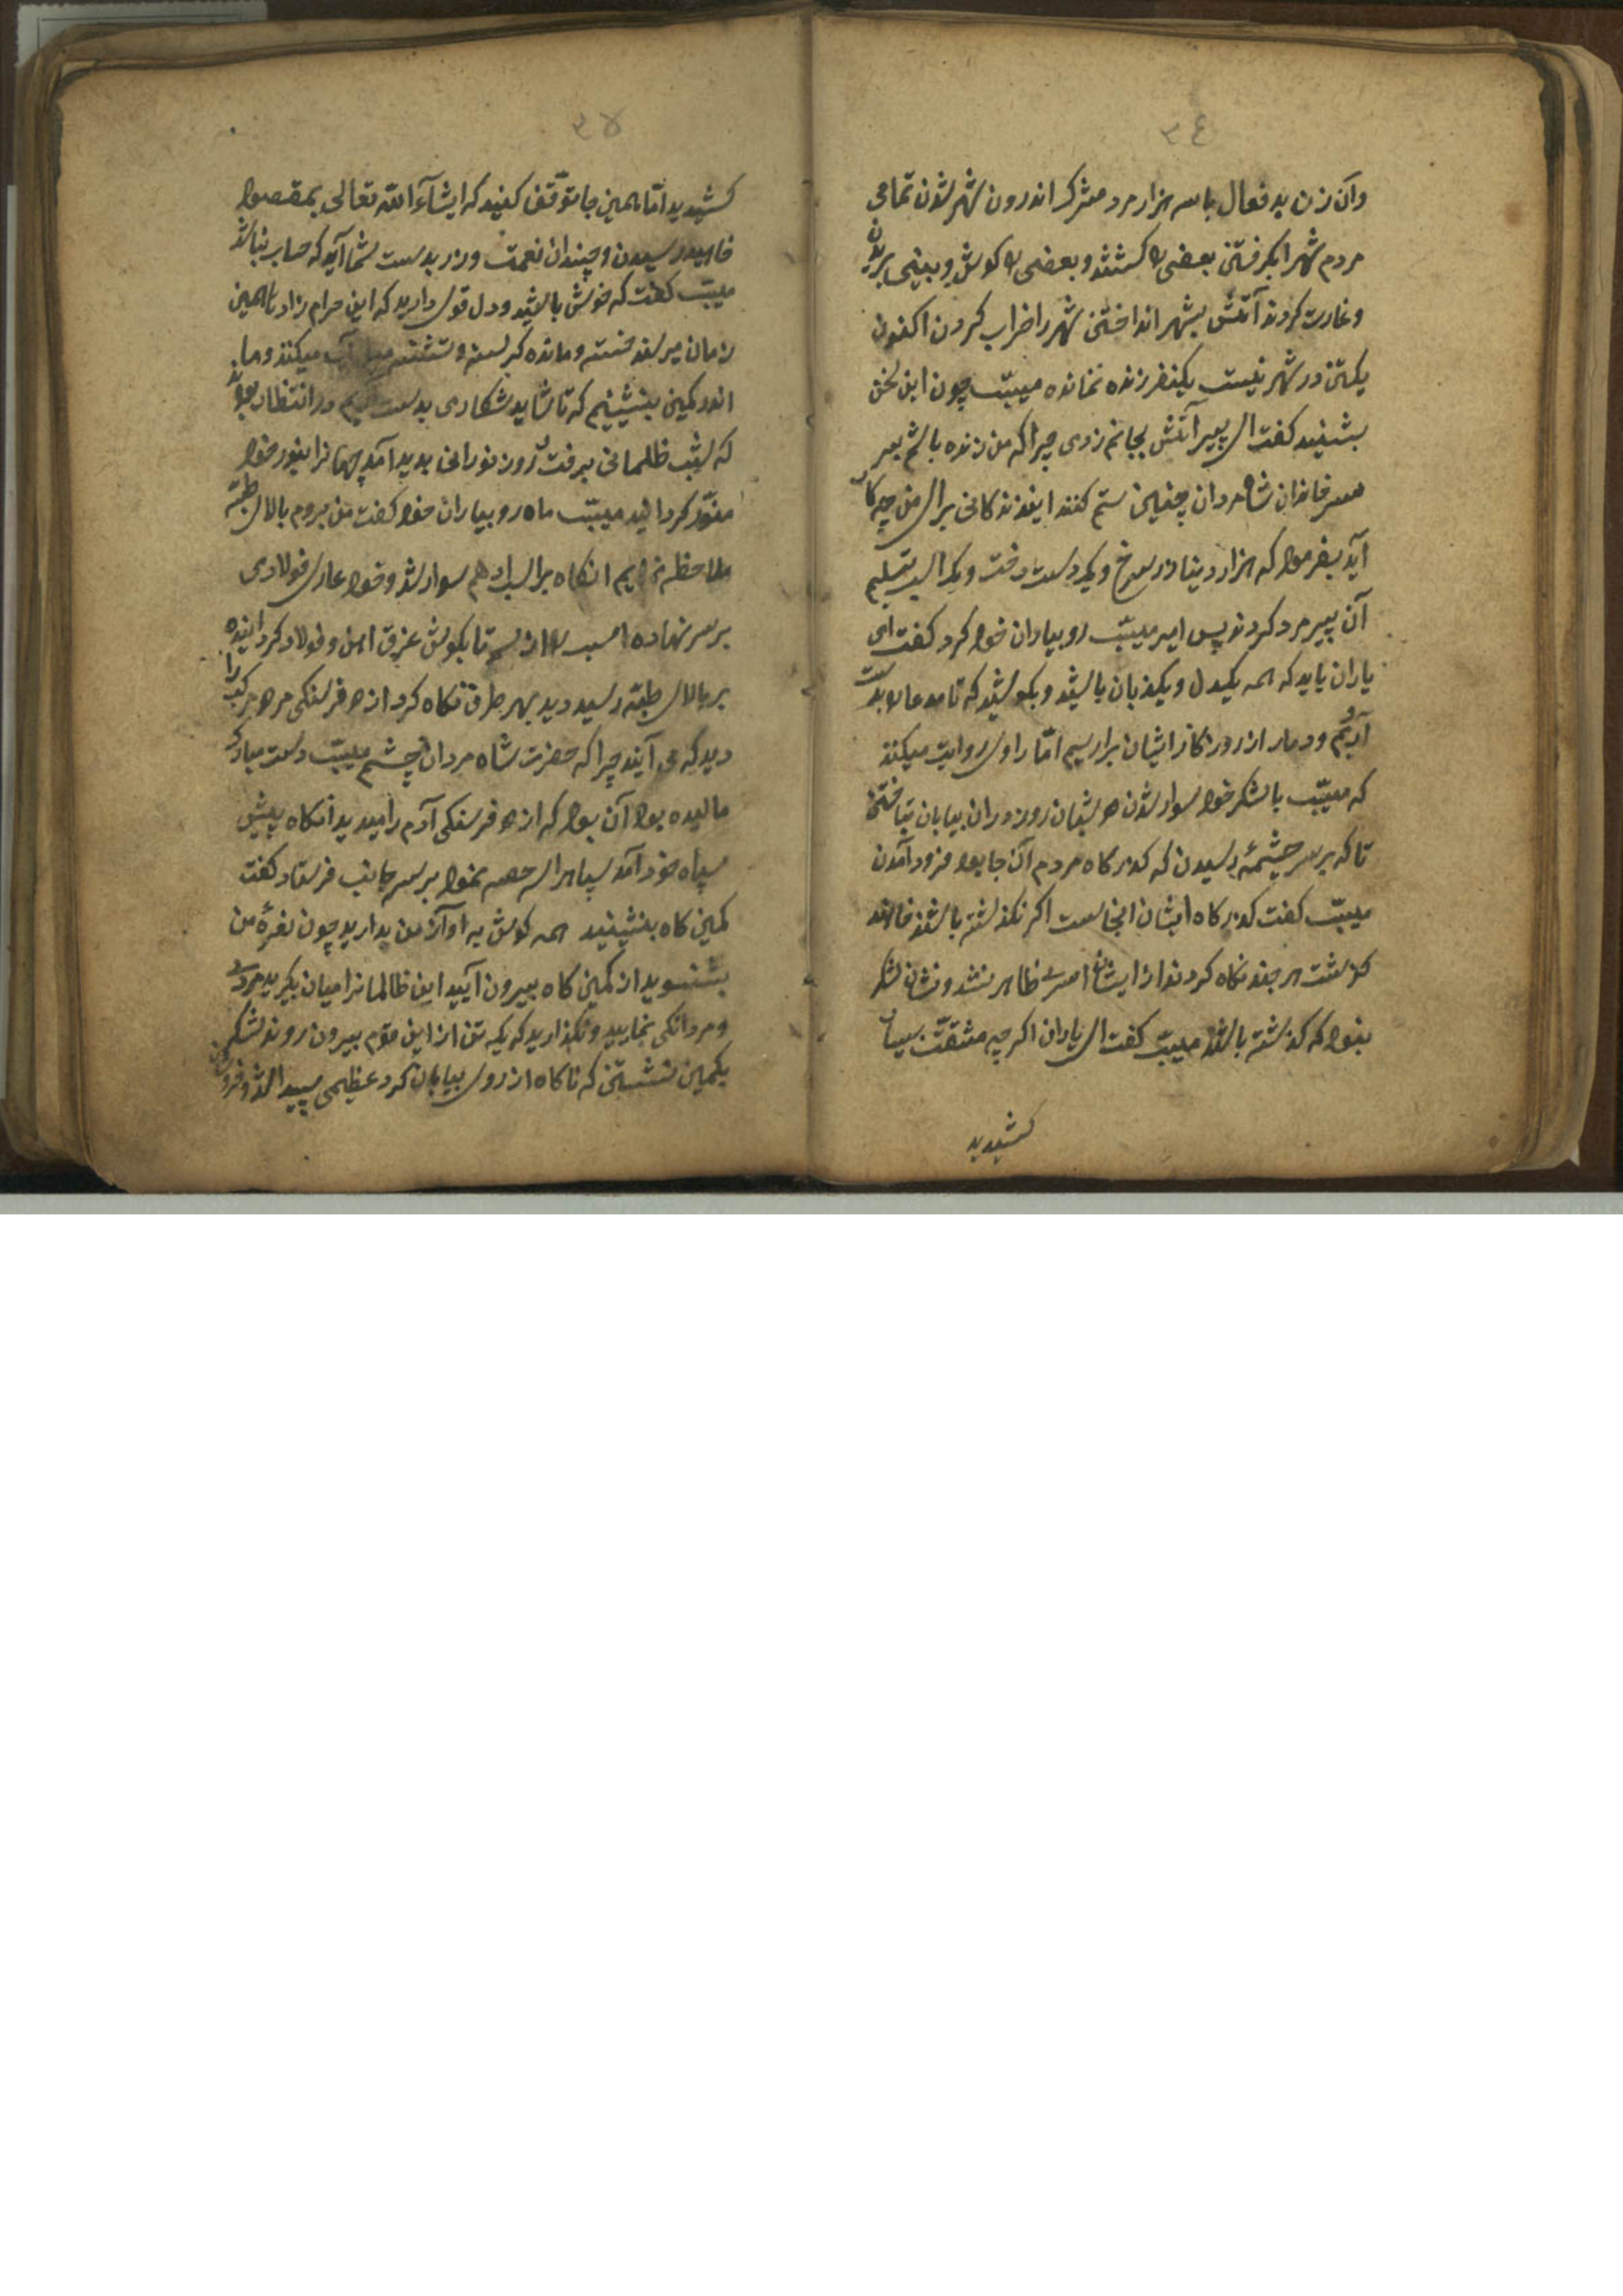 ٣٤
وآن زن بد فعال با سه هزار مرد مشرک اندرون شهر شدن تمامی
مردم شهر را بکرفتن بعضی را کشتند و بعضی را کوش و بینی بریدن
و غارت کردند آتش بشهر انداختن شهر را خراب کردن اکنون
یکتن در شهر نیست یکنفر زنده نمانده مسیّب چون این سخن
بشنید کفت ای پیر آتش بجانم زدی چرا که من زنده باشم بر
سر خاندان شاه مردان چنین ستم کنند این زندکانی برای من چه کار
آید بفرمود که هزار دینار زر سرخ و یکدست رخت و یک اسب تسلیم
آن پیر مرد کردند پس امیر مسیّب رو بیاران خود کرد کفت ای
یاران باید که همه یکدل و یکزبان باشید و بکوشید که تا مدعا را بدست
آریم و دمار از روزکار ایشان براریم امّا راوی روایت میکند
که مسیّب با لشکر خود سوار شدن دو شبان روز در ان بیابان بتاختن
تا که بر سر چشمهٔ رسیدن که کذرکاه مردم آن جا بود فرود آمدن
مسیّب کفت کذرکاه ایشان اینجاست اکر نکذشته باشند خواهند
کذشت هر چند نکاه کردند از ایشان اسری ظاهر نشد و نشان لشکر
نبود که کذشته باشند مسیّب کفت ای یاران اکر چه مشقّت بسیار
کشیدید
٣٥
کشیدید امّا همین جا توقّف کنید که ایشآء الله تعالی بمقصود
خواهید رسیدن و چندان نعمت و زر بدست شما آید که حساب نباشد
مسیّب کفت که خوش باشید و دل قوی دارید که این حرام زاد تا همین
زمان میرسند خسته و مانده کرسنه و تشنه میل آب میکنند و ما
اندر کمین بنشینیم که تا شاید شکاری بدست آریم در انتظار بودند
که شب ظلمانی برفت و روز نورانی بدید آمد جهانرا بنور خود
منوّر کردانید مسیّب ماه رو بیاران خود کفت من بروم بالای طبّه
ملاحظه نمایم انکاه بر اسب ادهم سوار شد و خود عادی فولادی
بر سر نهاده اسب را از سم تا بکوش غرق اهن و فولاد کردانیده
بر بالای طبّه رسید دید بهر طرف نکاه کرد از دو فرسنکی مرد مرکب را
دید که می آیند چرا که حضرت شاه مردان چشم مسیّب دست مبارک
مالیده بود آن بود که از دو فرسنکی آدم را میدید آنکاه پیش
سپاه خود آمد سپاه را سه حصه نمود بر سه جانب فرستاد کفت
کمین کاه بنشینید همه کوش به اواز من بدارید چون نعرهٔ من
بشنوید از کمین کاه بیرون آیید این ظالمانرا میان بکیرید مردی
و مردانکی نمایید و نکذارید که یک تن از این قوم بیرون روند لشکر
بکمین نشستن که ناکاه از روی بیابان کرد عظیمی پیدا شد و